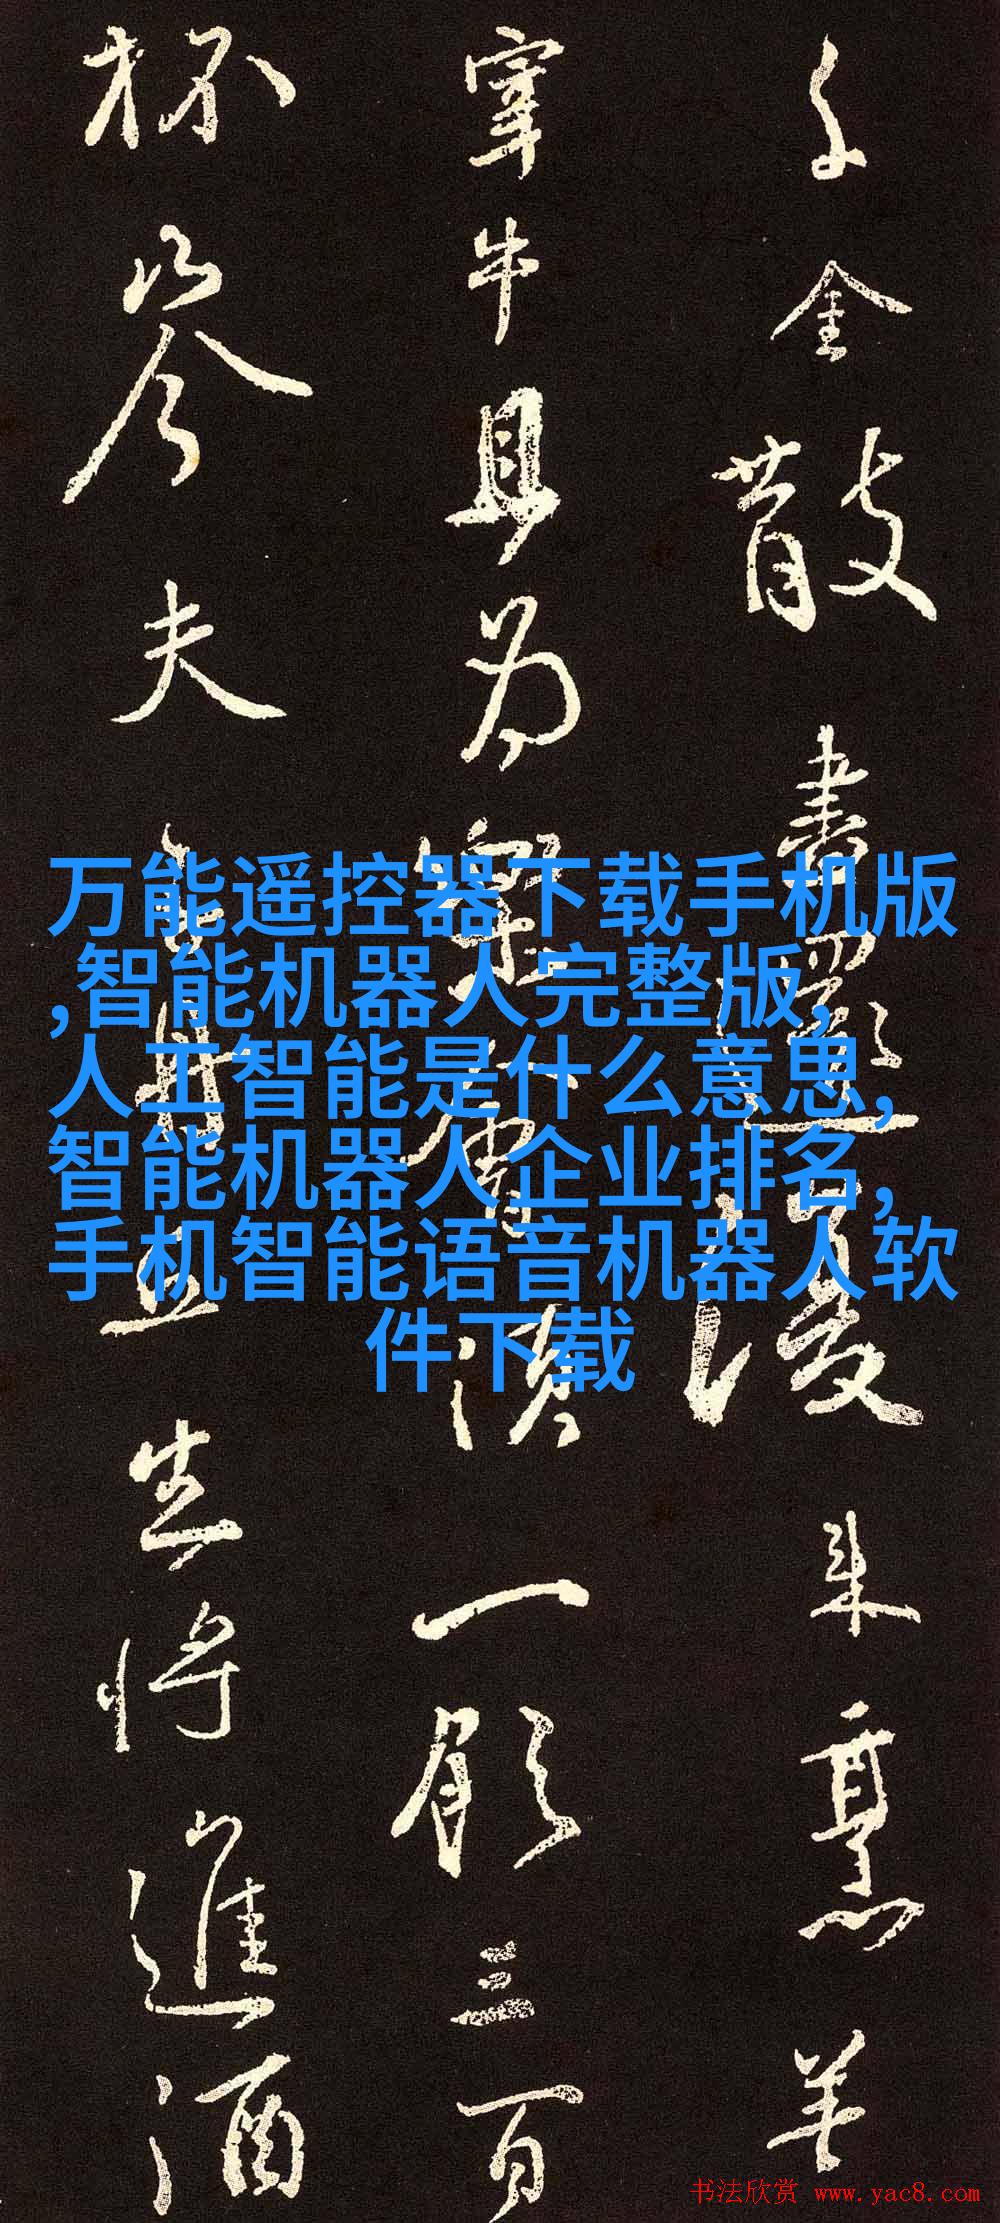 千金散盡還復來烹羊
宰牛且為樂會湏一飲三百
杯岑夫子丹丘生將進酒
万能遥控器下载手机版
,智能机器人完整版,
人工智能是什么意思,
智能机器人企业排名,
手机智能语音机器人软
件下载
书法欣赏 www.yac8.com